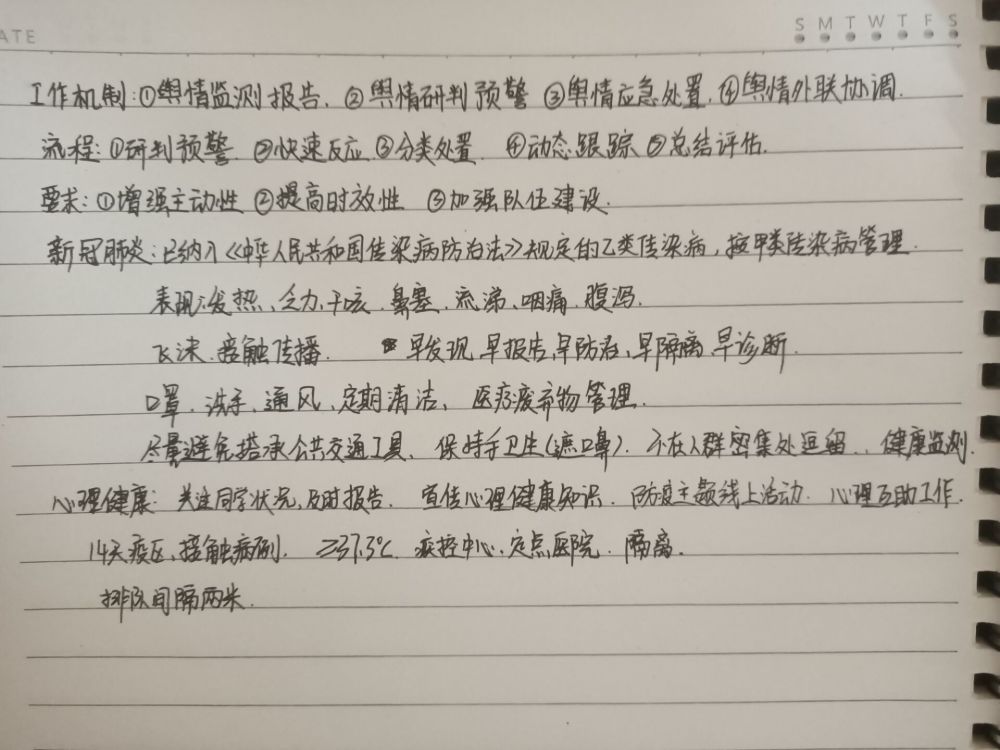 ATE
S M T W T F S
工作机制:①舆情监测报告. ②舆情研判预警 ③舆情应急处置. ④舆情外联协调.
流程:①研判预警. ②快速反应 ③分类处置 ④动态跟踪 ⑤总结评估.
要求:①增强主动性 ②提高时效性 ③加强队伍建设.
新冠肺炎:已纳入《中华人民共和国传染病防治法》规定的乙类传染病,按甲类传染病管理.
表现:发热、乏力、干咳、鼻塞、流涕、咽痛、腹泻.
飞沫、接触传播. 早发现、早报告、早防治、早隔离、早诊断.
口罩、洗手、通风、定期清洁、医疗废弃物管理.
尽量避免搭乘公共交通工具、保持手卫生(遮口鼻). 不在人群密集处逗留.. 健康监测.
心理健康: 关注同学状况,及时报告. 宣传心理健康知识. 防疫主题线上活动. 心理互助工作.
14天疫区、接触病例. ≥37.3℃. 疾控中心、定点医院. 隔离.
排队间隔两米.